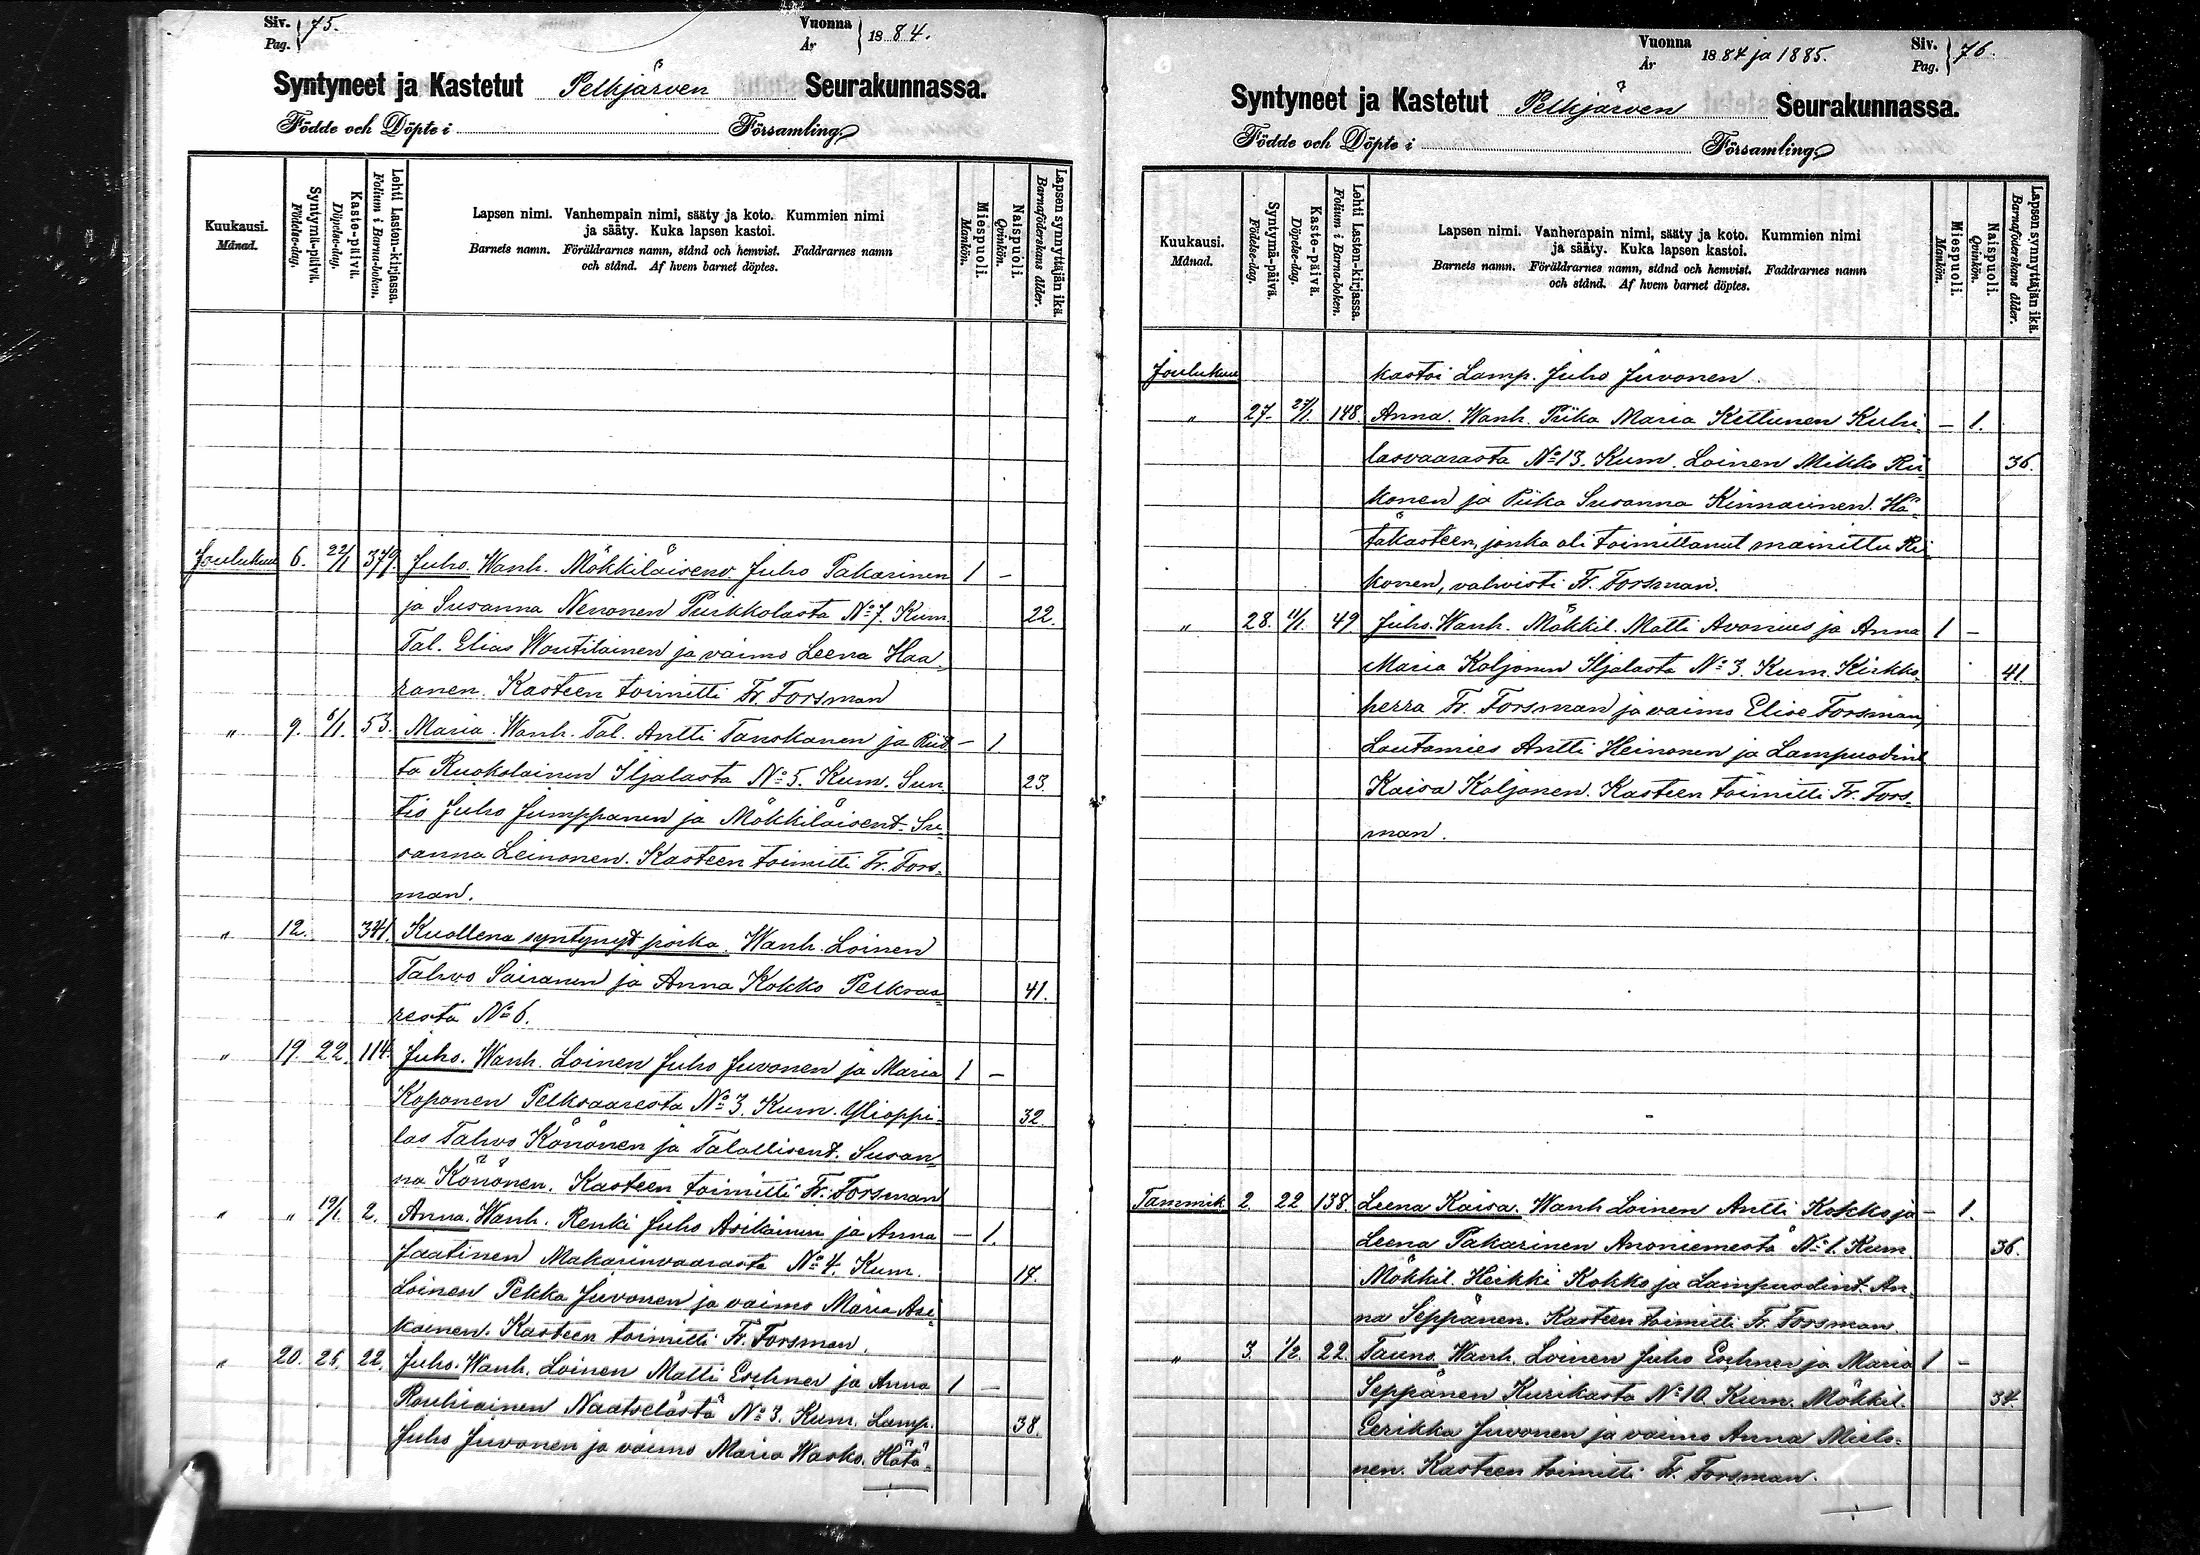 Siv. Pag. } 75.
Vuonna År } 1884.
Syntyneet ja Kastetut Pelkjärven Seurakunnassa.
Födde och Döpte i Församling.
Kuukausi. Månad.
Syntymä-päivä. Födelse-dag.
Kaste-päivä. Döpelse-dag.
Lehti Lasten-kirjassa. Folium i Barna-boken.
Lapsen nimi. Vanhempain nimi, sääty ja koto. Kummien nimi
ja sääty. Kuka lapsen kastoi.
Barnets namn. Föräldrarnes namn, stånd och hemvist. Faddrarnes namn
och stånd. Af hvem barnet döptes.
Miespuoli. Mankön.
Naispuoli. Qvinkön.
Lapsen synnyttäjän ikä. Barnaföderskans ålder.
Joulukuu 6. 22/1 379. Juho. Wanh. Mökkiläisenv. Juho Pakarinen 1 –
ja Susanna Nenonen Purkkolasta No 7. Kum. 22.
Tal. Elias Woutilainen ja vaimo Leena Haa-
ranen. Kasteen toimitti Fr. Forsman
" 9. 6/1. 53. Maria. Wanh. Tal. Antti Tanskanen ja Riit- – 1
ta Ruokolainen Iljalasta No 5. Kum. Sun- 23.
tio Juho Jumppanen ja Mökkiläisent. Su-
sanna Leinonen. Kasteen toimitti Fr. Fors-
man.
" 12. 341. Kuollena syntynyt poika. Wanh. Loinen
Tahvo Sairanen ja Anna Kokko Pelkvaa- 41.
resta No 6.
" 19. 22. 114. Juho. Wanh. Loinen Juho Juvonen ja Maria 1 –
Koponen Pelkvaaresta No 3. Kum. Ylioppi- 32.
las Tahvo Könönen ja Talollisent. Susan-
na Könönen. Kasteen toimitti Fr. Forsman
" " 19/1. 2. Anna. Wanh. Renki Juho Asikainen ja Anna – 1.
Jaatinen Makarinvaarasta No 4. Kum. 17.
Loinen Pekka Juvonen ja vaimo Maria Asi-
kainen. Kasteen toimitti Fr. Forsman.
" 20. 25. 22. Juho. Wanh. Loinen Matti Eschner ja Anna 1 –
Rouhiainen Naatselästä No 3. Kum. Lamp. 38.
Juho Juvonen ja vaimo Maria Wasko. Hätä-
Vuonna År 1884 ja 1885.
Siv. Pag. } 76
Syntyneet ja Kastetut Pelkjärven Seurakunnassa.
Födde och Döpte i Församling.
Kuukausi. Månad.
Syntymä-päivä. Födelse-dag.
Kaste-päivä. Döpelse-dag.
Lehti Lasten-kirjassa. Folium i Barna-boken.
Lapsen nimi. Vanhempain nimi, sääty ja koto. Kummien nimi
ja sääty. Kuka lapsen kastoi.
Barnets namn. Föräldrarnes namn, stånd och hemvist. Faddrarnes namn
och stånd. Af hvem barnet döptes.
Miespuoli. Mankön.
Naispuoli. Qvinkön.
Lapsen synnyttäjän ikä. Barnaföderskans ålder.
Joulukuu kastoi Lamp. Juho Juvonen.
" 27. 27/1. 148. Anna. Wanh. Piika Maria Kettunen Kuhi- – 1.
lasvaarasta No 13. Kum. Loinen Mikko Rii- 36.
konen ja Piika Susanna Kinnarinen. Hä-
täkasteen, jonka oli toimittanut mainittu Ri-
konen, vahvisti Fr. Forsman.
" 28. 11/1. 49. Juho. Wanh. Mökkil. Matti Avonius ja Anna 1 –
Maria Koljonen Iljalasta No 3. Kum. Kirkko- 41.
herra Fr. Forsman ja vaimo Elise Forsman,
Lautamies Antti Heinonen ja Lampuodint.
Kaisa Koljonen. Kasteen toimitti Fr. Fors-
man.
Tammik. 2. 22. 138. Leena Kaisa. Wanh. Loinen Antti Kokko ja – 1.
Leena Pakarinen Anoniemestä No 1. Kum. 36.
Mökkil. Heikki Kokko ja Lampuodint. An-
na Seppänen. Kasteen toimitti Fr. Forsman.
" 3. 1/2. 22. Tauno. Wanh. Loinen Juho Eschner ja Maria 1 –
Seppänen Kurikasta No 10. Kum. Mökkil. 34.
Eerikka Juvonen ja vaimo Anna Mielo-
nen. Kasteen toimitti Fr. Forsman.